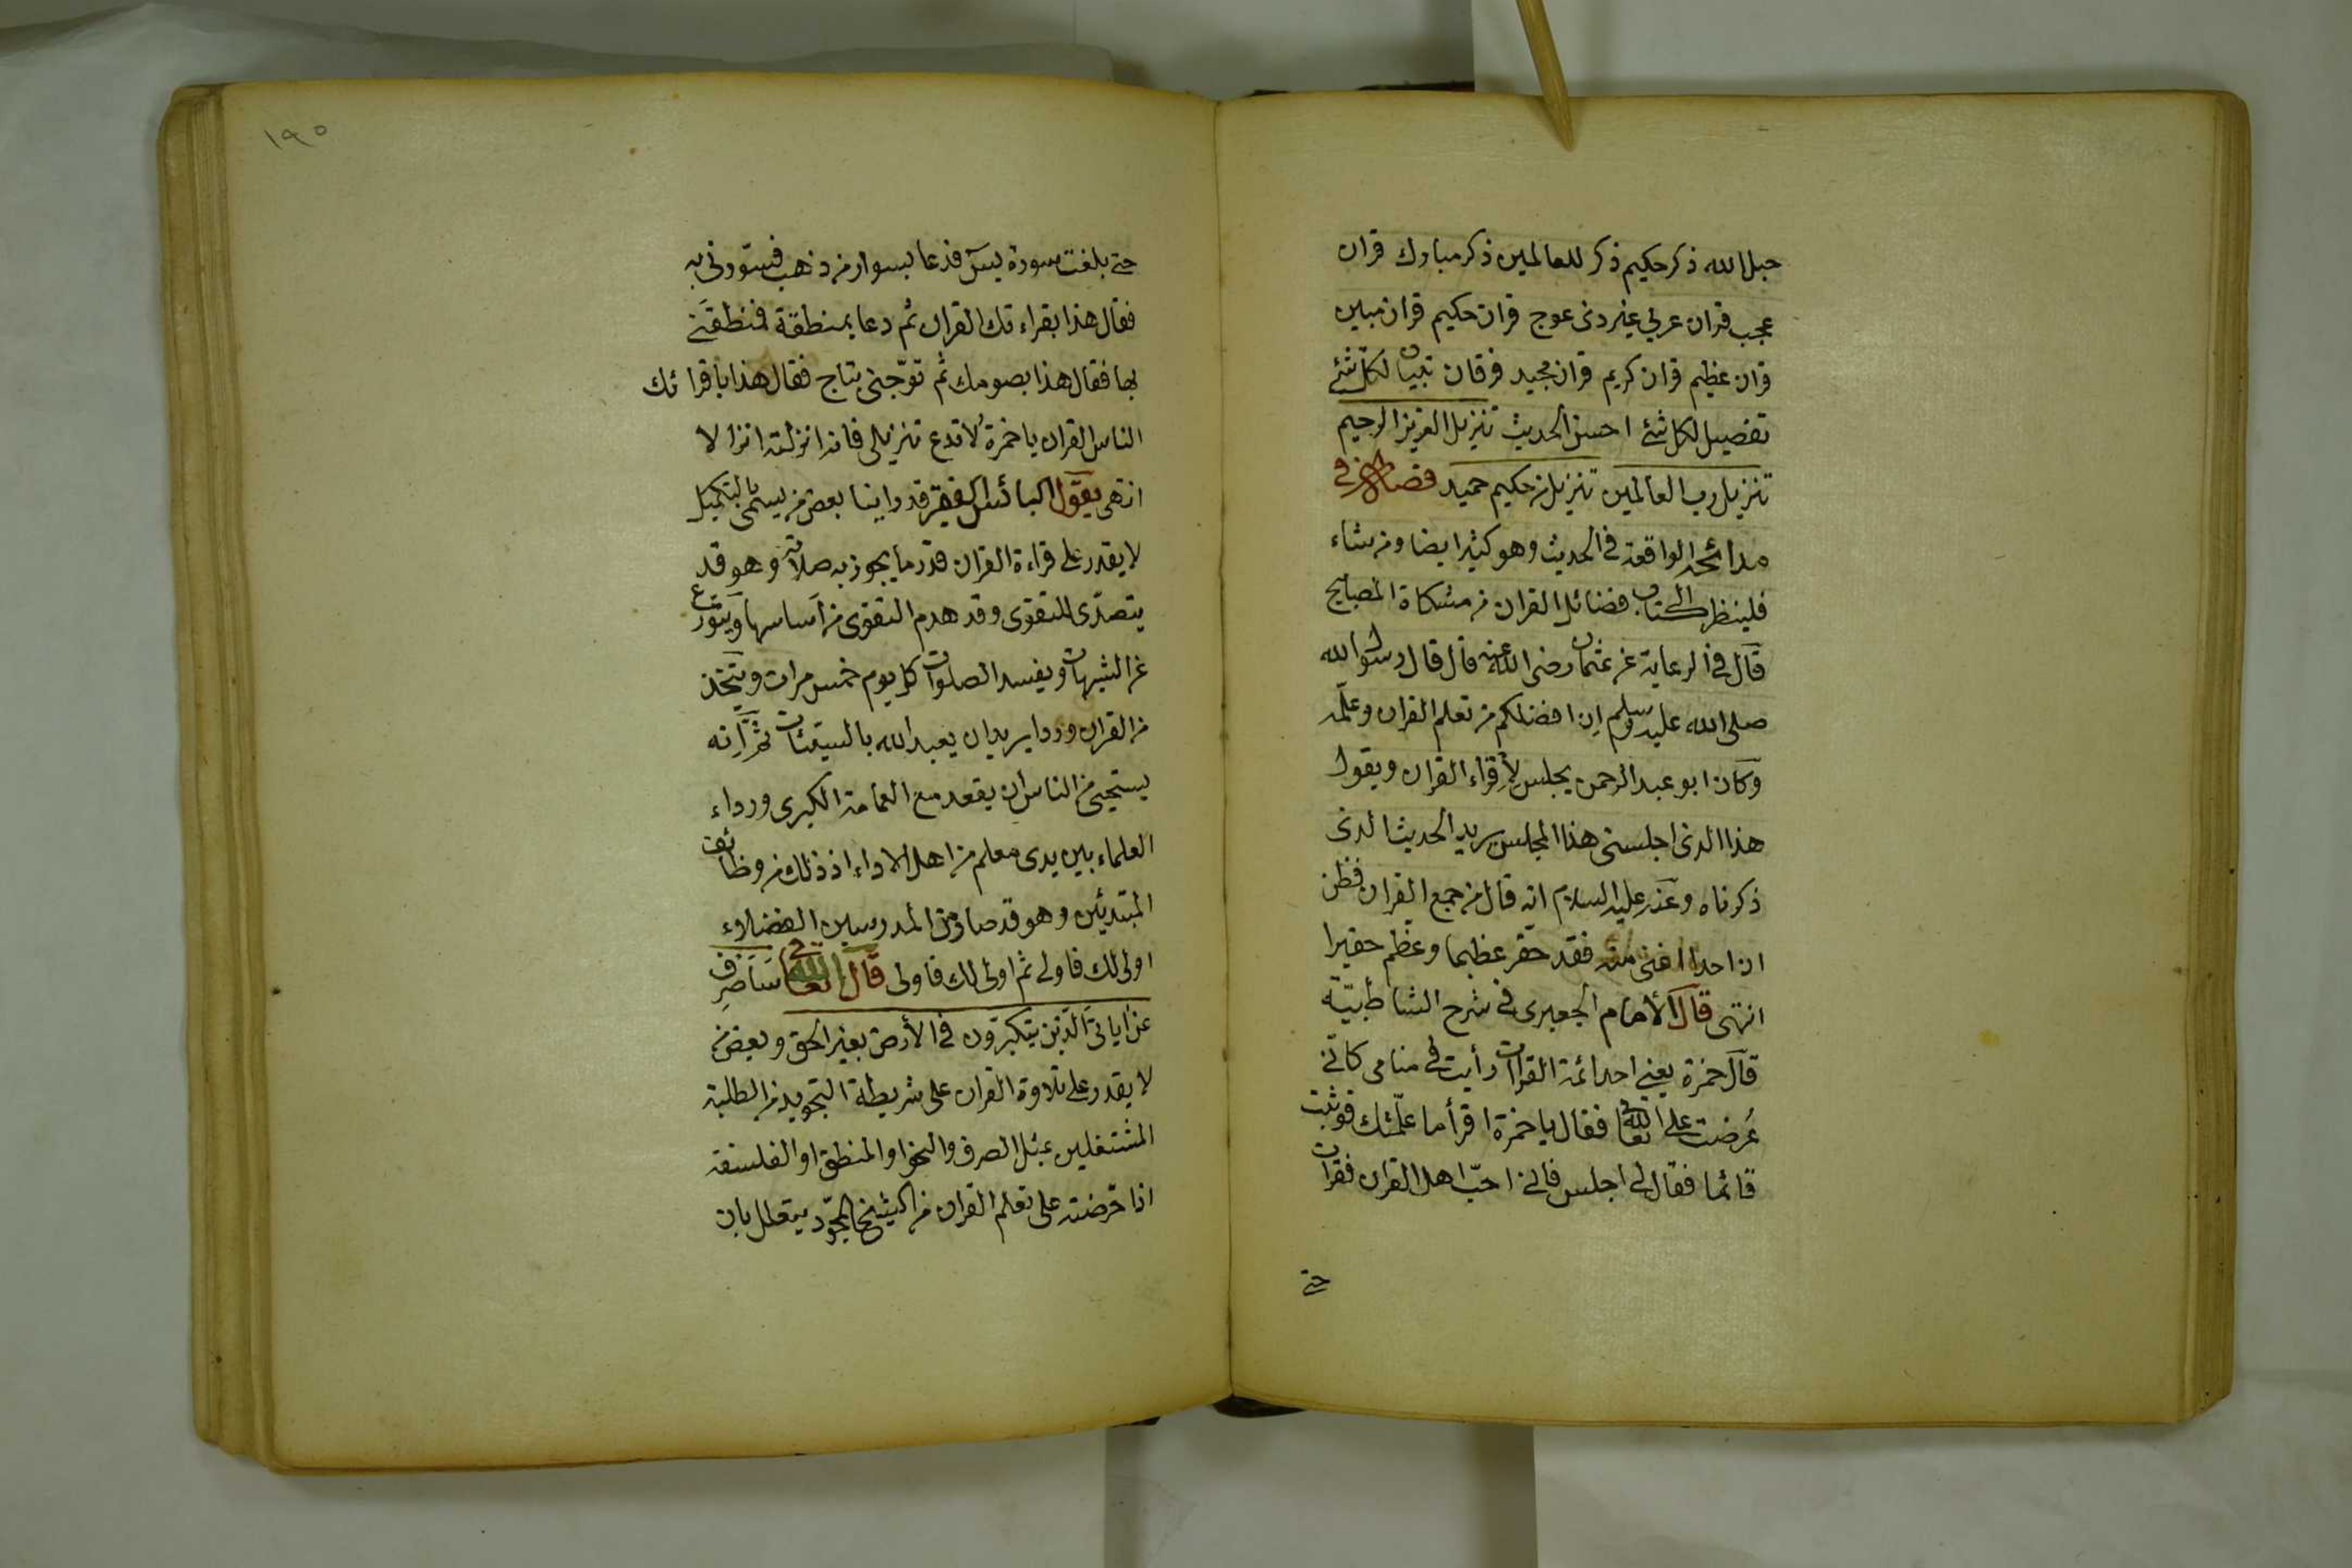 حبل الله ذكر حكيم ذكر للعالمين ذكر مبارك قران
عجب قران عربي غير ذى عوج قران حكيم قران مبين
قران عظيم قران كريم قران مجيد فرقان تبيان لكل شئ
تفصيل لكل شئ احسن الحديث تنزيل العزيز الرحيم
تنزيل رب العالمين تنزيل من حكيم حميد فصل اخر فى
مدائحه الواقعة فى الحديث وهو كثير ايضا ومن شاء
فلينظر الى كتاب فضائل القران من مشكاة المصابيح
قال فى الرعاية عن عثمان رضى الله عنه قال قال رسول الله
صلى الله عليه وسلم ان افضلكم من تعلم القران وعلّمه
وكان ابو عبد الرحمن يجلس لإقراء القران ويقول
هذا الذى اجلسنى هذا المجلس يريد الحديث الذى
ذكرناه وعنه عليه السلام انه قال من جمع القران فظن
ان احدا اغنى منه فقد حقّر عظيما وعظّم حقيرا
انتهى قال الأمام الجعبرى فى شرح الشاطبيّة
قال حمزة يعنى احد ائمة القرات رأيت فى منامى كانّى
عُرضت على الله تعالى فقال يا حمزة اقرأ ما علّمتك فوثبت
قائما فقال لى اجلس فانى احبّ اهل القران فقرات
حتى
١٩٥
حتى بلغت سورة يس فدعا بسوار من ذهب فسوّرنى به
فقال هذا بقراءتك القران ثم دعا بمنطقة فنطقنى
بها فقال هذا بصومك ثم توّجنى بتاج فقال هذا باقرائك
الناس القران يا حمزة لا تدع تنزيلى فانى انزلته انزالا
انتهى يقول البائس الفقير قد راينا بعض من يسمى بالتكميل
لا يقدر على قراءة القران قدر ما يجوز به صلاته وهو قد
يتصدّى للتقوى وقد هدم التقوى من أساسها ويتورّع
عن الشبهات ويفسد الصلوات كل يوم خمس مرات ويتّخذ
من القران وردا يريد ان يعبد الله بالسيئات ثم انّه
يستحيى من الناس ان يقعد مع العمامة الكبرى ورداء
العلماء بين يدى معلم من اهل الاداء اذ ذلك من وظائف
المبتدئين وهو قد صار من المدرسين الفضلاء
اولى لك فاولى ثم اولى لك فاولى قال الله تعالى سَاَصْرِفُ
عن اياتى الّذين يتكبّرون فى الأرض بغير الحق وبعض من
لا يقدر على تلاوة القران على شريطة التجويد من الطلبة
المشتغلين بمثل الصرف والنحو او المنطق او الفلسفة
اذا حّرضته على تعلم القران من الشيخ المجوّد يتعلل بان